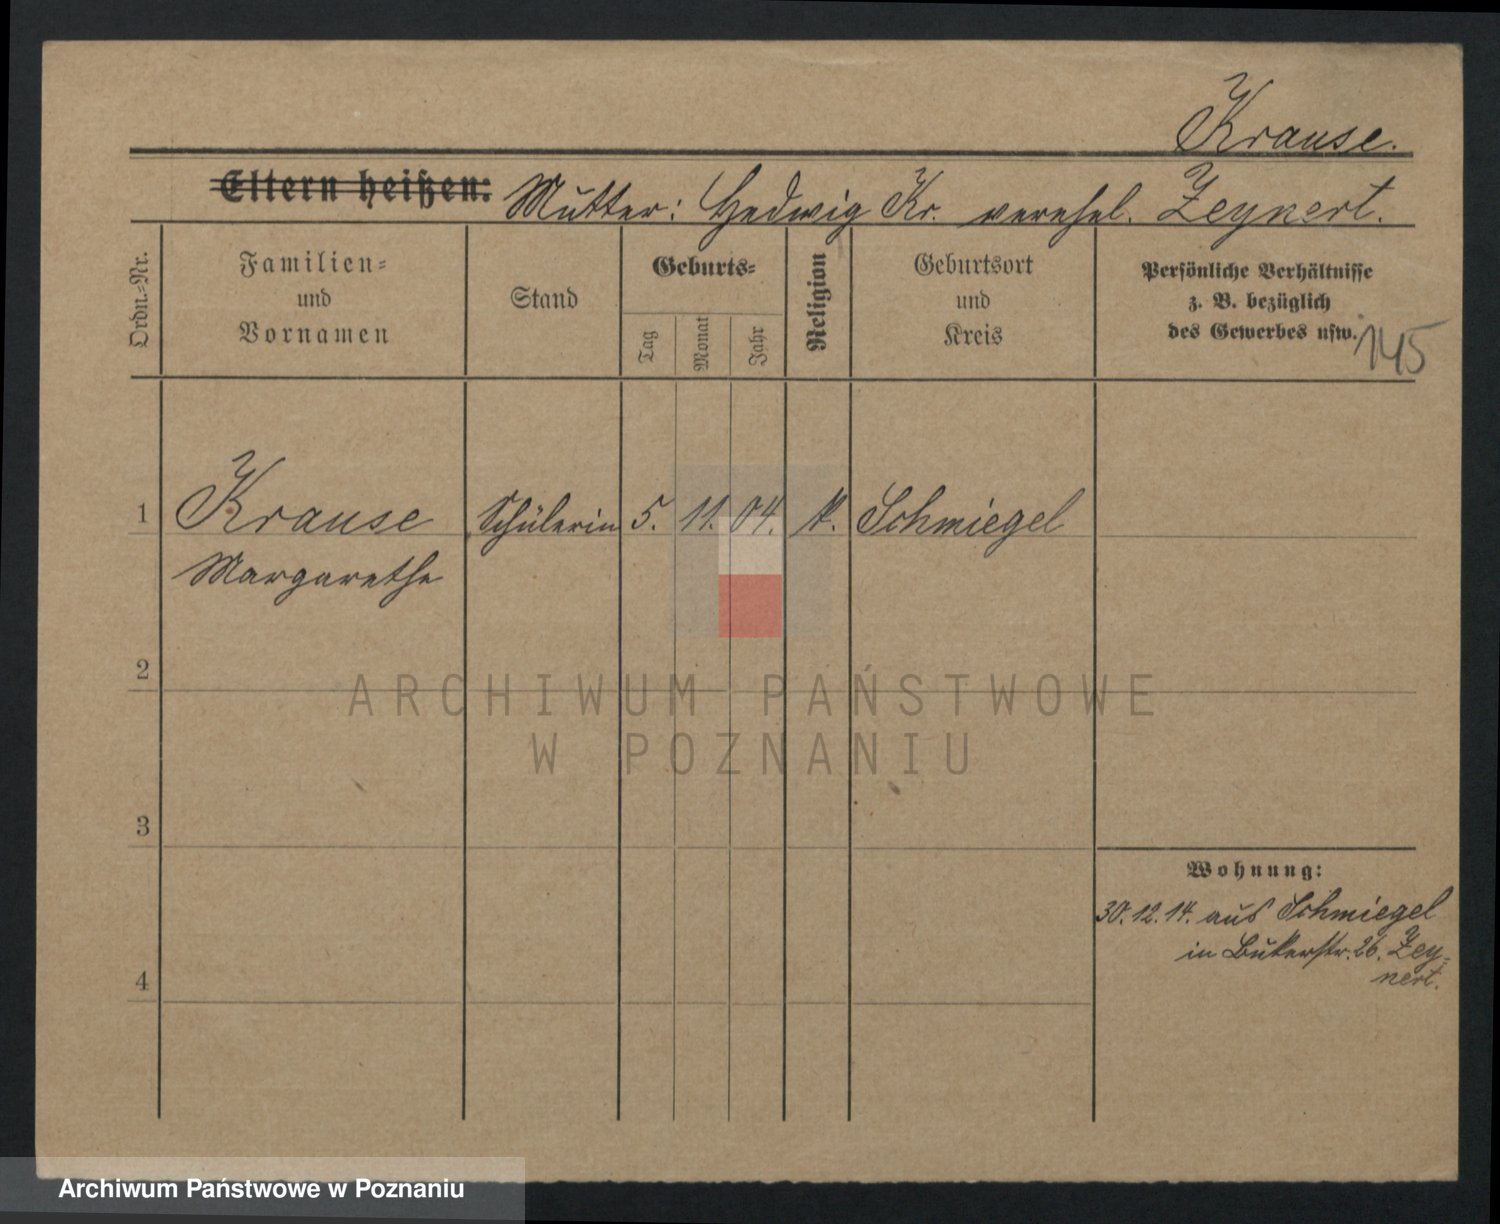 Krause.
Eltern heißen: Mutter: Hedwig Kr. verehel. Zeynert.
Ordn.-Nr.
Familien-
und
Vornamen
Stand
Geburts-
Tag
Monat
Jahr
Religion
Geburtsort
und
Kreis
Persönliche Verhältnisse
z. B. bezüglich
des Gewerbes usw.
145
1 Krause Schülerin 5. 11. 04. k. Schmiegel
Margarethe
2
ARCHIWUM PAŃSTWOWE
W POZNANIU
3
Wohnung:
30.12.14. aus Schmiegel
in Bukerstr. 26. Zey-
nert.
4
Archiwum Państwowe w Poznaniu